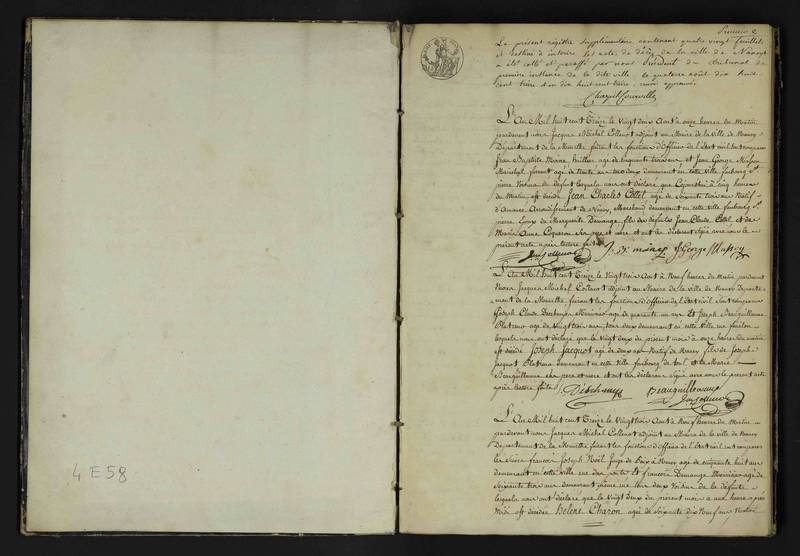 4 E 58
Premier
Le présent registre supplémentaire contenant quatre vingt feuillets
et destiné à inscrire les actes de décès de la ville de Nancy
a été cotté et paraffé par nous Président du Tribunal de
première instance de la dite ville, le quatorze août dix huit
cent treize
L'An Mil huit cent Treize le Vingt deux Aout à onze heures du Matin
pardevant nous Jacques Michel Collenot adjoint au Maire de la Ville de Nancy
Département de la Meurthe faisant les fonctions d'Officier de l'Etat civil sont comparus
Jean Baptiste Moine huillier agé de cinquante trois ans et Jean George Masson
Maréchal ferrant agé de trente tous deux demeurant en cette ville faubourg St.
pierre Voisins du défunt lesquels nous ont déclaré que Cejourd'hui à cinq heures
du Matin est décédé Jean Charles Cottel agé de soixante trois ans Natif
d'Amance Arrondissement de Nancy, Marchand demeurant en cette ville faubourg St.
pierre Epoux de Marguerite Demange fils des défunts Jean Claude Cottel et de
Marie Anne ses père et mère et ont les déclarants signé avec nous le
présent acte après lecture faite
L'An Mil huit cent Treize le Vingt trois Aout à Neuf heures du Matin pardevant
Nous Jacques Michel Collenot adjoint au Maire de la Ville de Nancy Departe-
ment de la Meurthe faisant les fonctions d'Officier de l'Etat civil sont comparus
Joseph Claude Deschamps Menuisier agé de quarante un ans Et Joseph Beauguillaume
Platreur agé de Vingt trois ans tous deux demeurant en cette Ville
lesquels nous ont déclaré que le Vingt deux du présent mois à onze heures du matin
est décédé Joseph Jacquot agé de deux ans Natif de Nancy fils de Joseph
Jacquot Platreur demeurant en cette ville faubourg de et de Marie
Beauguillaume ses père et mère et ont les déclarans signé avec nous le présent acte
après lecture faite Deschamps Beauguilleaume
L'An Mil huit cent Treize le Vingt trois Aout à Neuf heures du Matin
pardevant nous Jacques Michel Collenot adjoint au Maire de la Ville de Nancy
Département de la Meurthe faisant les fonctions d'Officier de l'Etat civil sont comparus
les Sieurs françois Joseph Noël Juge de Paix à Nancy agé de cinquante huit ans
demeurant en cette ville rue Et francois Demange Menuisier agé de
soixante trois ans demeurant même rue tous deux Voisins de la défunte
lesquels nous ont déclaré que le Vingt deux du présent mois à heures après
midi est décédée Helene Charon agée de soixante dix Neuf ans Native